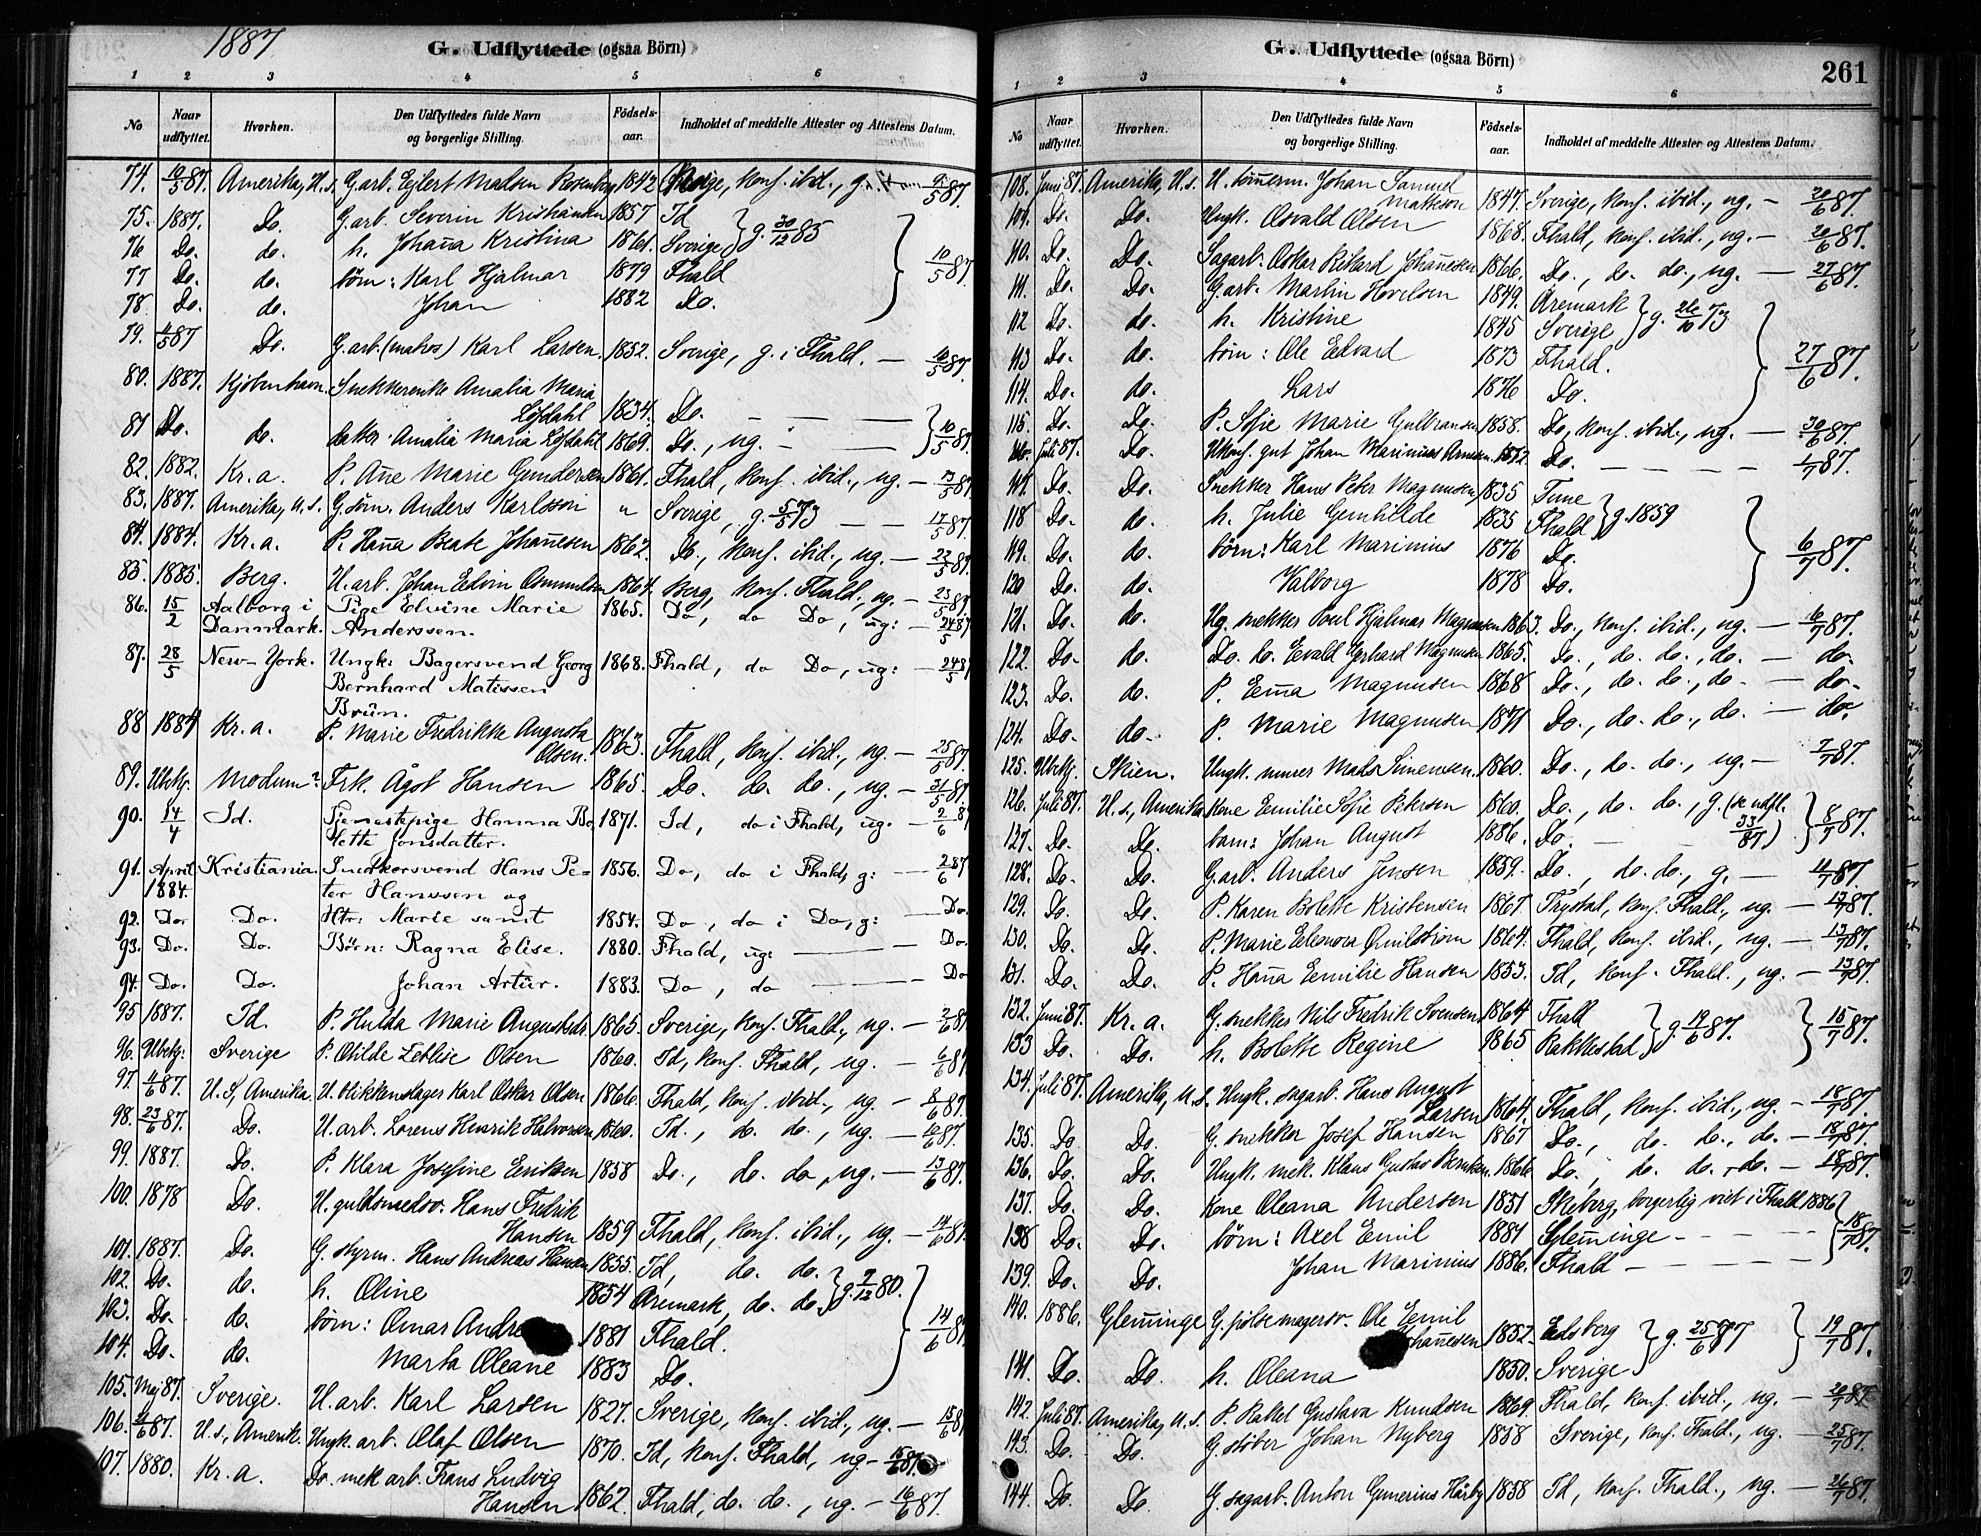 1887
G. Udflyttede (ogsaa Börn)
1 2 3 4 5 6
No Naar udflyttet. Hvorhen. Den Udflyttedes fulde Navn og borgerlige Stilling. Födsels-aar. Indholdet af meddelte Attester og Attestens Datum.
74. 10/5 87. Amerika, U.s. G.arb. Ejlert Madsen Rosenberg 1842 konf. ibid., g. 9/5 87.
75. 1887. Do. G.arb. Severin Kristiansen 1857 Id } g. 30/12 83
76 Do. do. h. Johana Kristina 1861. Sverige
77 Do. do. börn: Karl Hjalmar 1879 Fhald 10/5 87.
78. Do. do. Johan 1882 Do.
79. 4/5 87 Do. G.arb. (matros) Karl Larsen. 1852. Sverige, g. i Fhald. — 10/5 87.
80. 1887. Kjöbenhavn. Snekkerenke Amalia Maria
Löfdahl 1834. Do. — — —
81 Do. do. datter Amalia Maria Löfdahl 1869. Do., ug. — — 10/5 87.
82. 1882. Kr.a. P. Ane Marie Gundersen 1861. Fhald, konf. ibid., ug. — 13/5 87
83. 1887. Amerika, U.S. G. Anders Karlsson " Sverige, g. 5/5 73 — — 17/5 87.
84. 1884. Kr.a. P. Hana Beate Johanesen 1862. Do., konf. ibid., ug. — 22/5 87.
85. 1885. Berg. U.arb. Johan Edvin Osmundsen 1864. Berg, konf. Fhald., ug. — 23/5 87.
86. 15/2 Aalborg i Pige Elvine Marie 1865. Do, do Do, ug: — 24/5 87
Danmark. Anderssen.
87. 28/5 New-York. Ungk: Bagersvend Georg 1868. Fhald, do Do, ug: — 24/5 87
Bernhard Matissen
Brün.
88 1884 Kr.a. P. Marie Fredrikke Augusta
Olsen. 1863. Fhald, konf. ibid., ug. — 25/5 87.
89. Ubek. Modum? Frk. Ågot Hansen 1865. Do. do. do., ug. — 31/5 87
90. 14/4 Id. Tjenestepige Hanna Bo- 1871. Id, do i Fhald, ug: — 2/6 87
lette Jonsdatter.
91. April Kristiania. Snedkersvend Hans Pe- 1856. Do, do i Fhald, g: — 2/6 87
1884. ter Hanssen og
92. Do. Do. Htr: Marie samt 1854. Do, do i Do, g: — Do.
93. Do. Do. Börn: Ragna Elise. 1880. Fhald, ug: — Do.
94. Do. Do. Johan Artur. 1883. Do, do — Do
95 1887. Id. P. Hulda Marie Augustsdr. 1865. Sverige, konf. Fhald., ug. — 2/6 87.
96. Ubek: Sverige P. Otilde Olsen 1860. Id, konf. Fhald, ug. — 6/6 87
97. 4/6 87. U.S, Amerika. U. Karl Oskar Olsen 1866. Fhald, konf. ibid., ug. — 8/6 87.
98. 23/6 87. Do. U.arb. Lorens Henrik Halvorsen 1860. Id., do. do., ug. — 10/6 87.
99. 1887. Do. P. Klara Josefine Eeriksen 1858 Do., do. do, ug. — 13/6 87.
100. 1878 Do. U. guldsmedsv. Hans Fredrik
Hansen 1859 Fhald, konf. ibid., ug. — 14/6 87.
101. 1887. Do. G. styrm. Hans Andreas Hansen 1855. Id, do. do. } g. 7/12 80.
102. Do. do. h. Oline 1854 Aremark, do. do.
103. Do. do. börn: Omar Andre 1881 Fhald. 14/6 87
104. Do. do. Marta Oleane 1883 Do.
105. Maj 87. Sverige. U. arb. Karl Larsen 1827. Sverige, konf. ibid., ug. — 15/6 87
106. 87. U.s, Amerik. Ungk. arb. Olaf Olsen 1870. Id, konf. Fhald, ug — 15/6 87.
107. 1880. Kr.a. Do. mek arb. Frans Ludvig
Hansen 1862. Fhald, do. do., ug. — 16/6 87.
G. Udflyttede (ogsaa Börn)
261
1 2 3 4 5 6
No Naar udflyttet. Hvorhen. Den Udflyttedes fulde Navn og borgerlige Stilling. Födsels-aar. Indholdet af meddelte Attester og Attestens Datum.
108. Juni 87. Amerika, U.s. U. tömerm. Johan Samuel
Matteson 1847. Sverige, konf. ibid., ug. — 20/6 87.
109. Do. Do. Ungk. Osvald Olsen 1868. Fhald, konf. ibid., ug. — 20/6 87.
110. Do. Do. Sagarb. Oskar Rikard Johanesen 1866. Do., do. do., ug. — 27/6 87.
111. Do. Do. G.arb. Martin Hovelsen 1849. Aremark } g. 26/10 73
112 Do. do. h. Kristine 1845 Sverige
113 Do. do. börn: Ole Edvard 1873 Fhald. 27/6 87.
114. Do. do. Lars 1876 Do.
115. Do. Do. P. Sofie Marie Gulbransen 1858. Do, konf. ibid., ug. — 30/6 87.
116. Juli 87. Do. Ukonf. gut Johan Marinius Arnesen. 1872. Do. — — — 1/7 87.
117. Do. Do. Snekker Hans Peter Magnusen 1835 Tune } g. 1859
118 Do. do. h. Julie Gunhilde 1835 Fhald
119. Do. do. börn: Karl Marinius 1876 Do. 6/7 87.
120 Do. do. Valborg 1878 Do.
121. Do. do. Ug. snekker Poul Hjalmar Magnusen 1863. Do., konf. ibid., ug. — 6/7 87.
122. Do. do. Do. do. Evald Gerhard Magnusen 1865. Do., do. do., do. — do.
123. Do. do. P. Ema Magnusen 1868 Do., do. do., do. — do.
124. Do. do. P. Marie Magnusen 1871 Do., do. do., do. — do.
125. Ubek. Skien. Ungk. murer Mads Simensen. 1860. Do., do. do., ug. — 7/7 87.
126. Juli 87. U.s, Amerika Kone Eemilie Sofie Petersen 1860. Do., do. do., g. (se udfl. 33/87) 8/7 87.
127. Do. Do. barn: Johan August 1886. Do. —
128. Do. Do. G.arb. Anders Jensen 1859. Do., do. do., g. — 11/7 87.
129. Do. Do. P. Karen Bolette Kristensen 1867. Trysial, konf. Fhald., ug. — 12/7 87.
130. Do. Do. P. Marie Eleonora Qvilström 1864. Fhald, konf. ibid., ug. — 13/7 87.
131. Do. Do. P. Hana Eemilie Hansen 1853. Id, konf. Fhald., ug. — 13/7 87.
132. Juni 87. Kr.a. G. snekker Nils Fredrik Svensen 1864 Fhald } g. 19/6 87. 15/7 87.
133 Do. Do. h. Bolette Regine 1865 Rakkestad
134. Juli 87. Amerika, U.s. Ungk. sagarb. Hans August
Larsen 1864. Fhald, konf. ibid., ug. — 18/7 87.
135. Do. Do. G. snekker Josef Hansen 1867 Do., do. do., do. — 18/7 87.
136. Do. Do. Ungk. mek. Klaus Gustav Berntsen. 1866. Do., do. do. do. — 18/7 87.
137. Do. Do. Kone Oleana Andersen 1851 Skeberg, borgerlig viet i Fhald 1886
138 Do. Do. börn: Axel Emil 1881 Gleminge — — 18/7 87.
139. Do. Do. Johan Marinius 1886. Fhald — — —
140. 1886. Gleminge G. pölsemagersv. Ole Eemil
Johanesen 1852. Edsberg } g. 25/6 87 } 19/7 87.
141. Do. Do. h. Oleana 1850. Sverige
142. Juli 87. Amerika, U.s. P. Rakel Gustava Knudsen 1869. Fhald, konf. ibid., ug. — 20/7 87
143. Do. Do. G. stöber Johan Nyberg 1858 Sverige, konf. Fhald., ug. — 25/7 87.
144. Do. Do. G. sagarb. Anton Gunerius Hårby 1858 Id, konf. Fhald., ug. — 26/7 87.